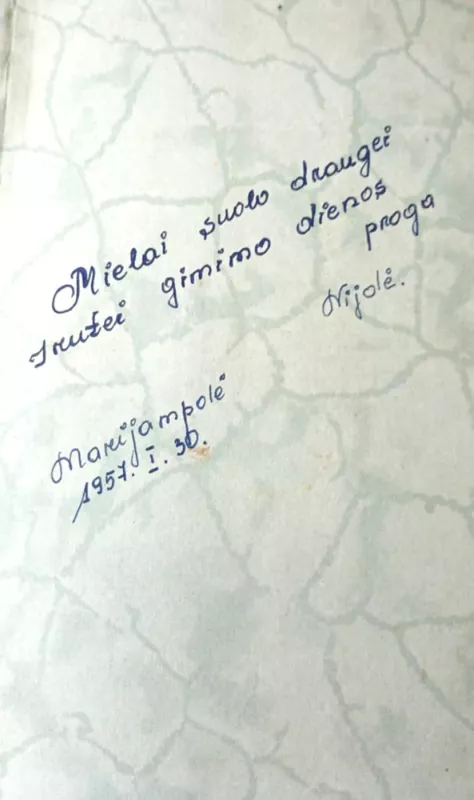 Mielai suolo draugei
Irutei gimimo dienos
proga
Nijolė.
Marijampolė
1957. I. 30.